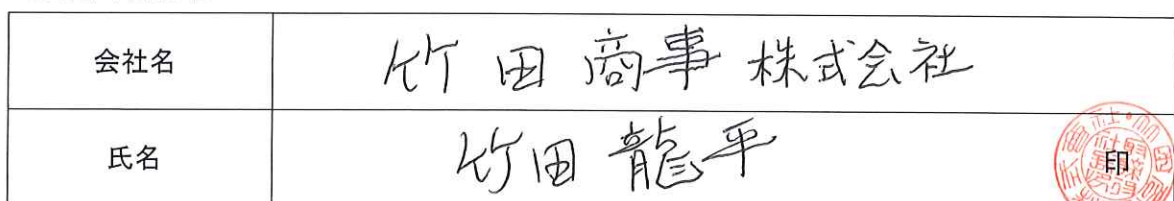 会社名 竹田商事株式会社
氏名 竹田龍平 印